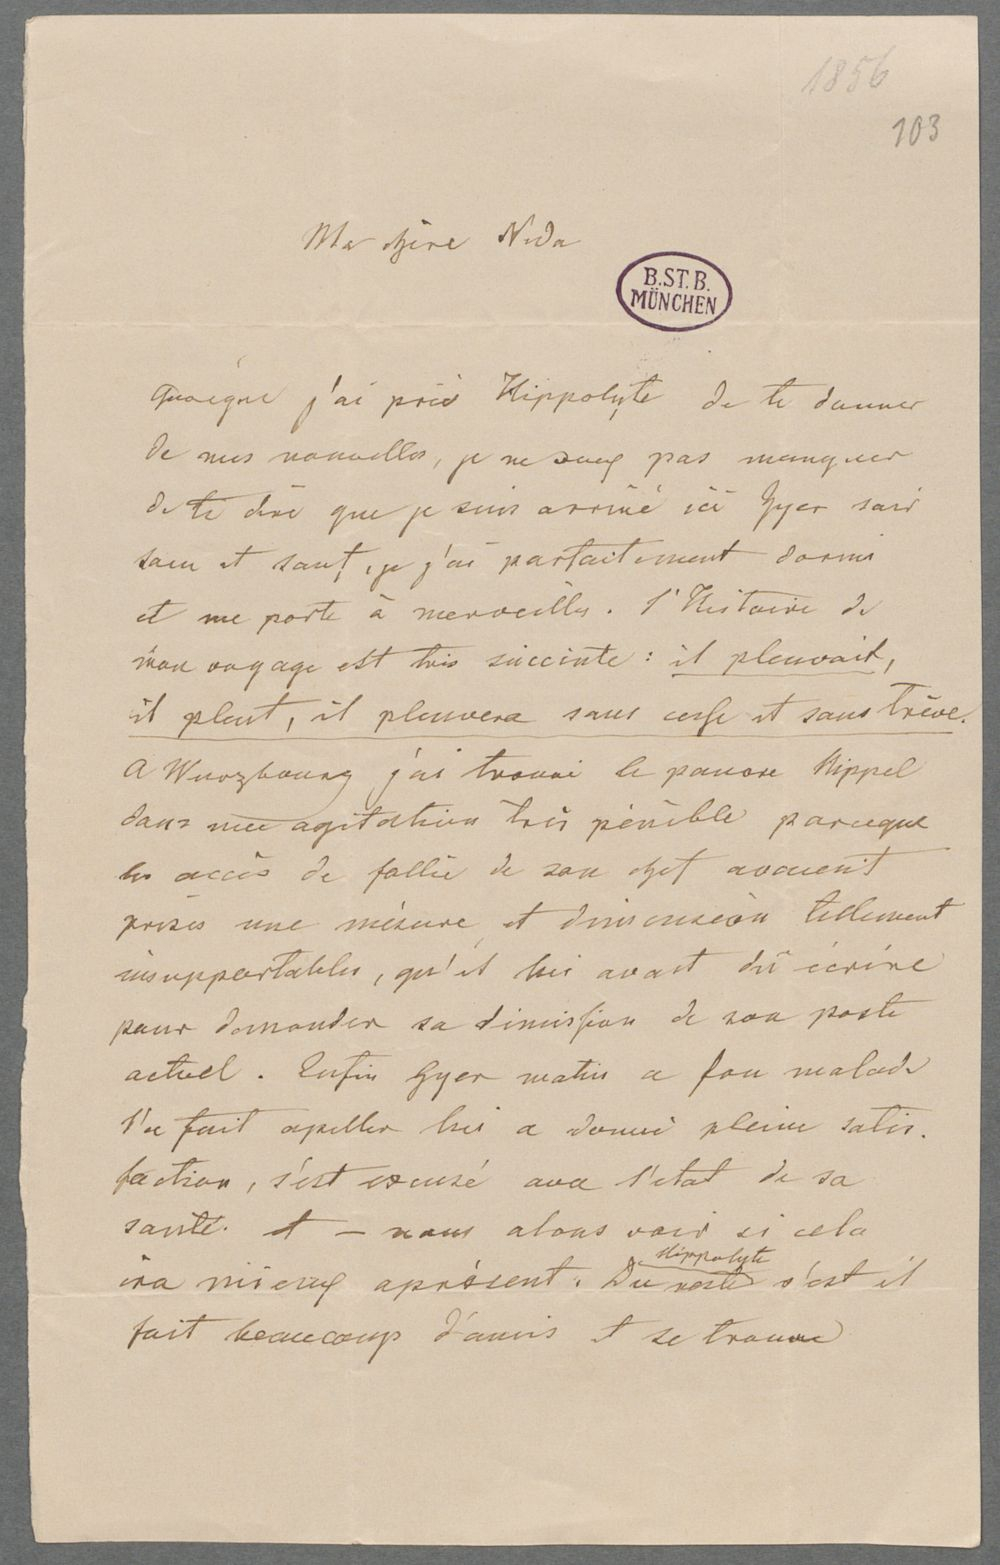 1856
103
Ma chère Nida
B.ST.B.
MÜNCHEN
Quoique j'ai prié Hippolyte de te donner
de mes nouvelles, je ne veux pas manquer
de te dire que je suis arrivé ici hyer soir
sain et sauf, je j'ai parfaitement dormi
et me porte à merveilles. l'Histoire de
mon voyage est très succinte: il pleuvait,
il pleut, il pleuvera sans cesse et sans trève.
A Wurzbourg j'ai trouvé le pauvre Hippel
dans une agitation très pénible parceque
les accès de follie de son chef avaient
prises une mésure et dimension tellement
insupportables, qu'il lui avait dû écrire
pour demander sa dimission de son poste
actuel. Enfin hyer matin ce fou malade
l'a fait apeller lui a donné pleine satis-
faction, s'est excusé avec l'etat de sa
santé. et — nous alons voir si cela
ira mieux aprèsent. Du reste Hippolyte s'est il
fait beaucoup d'amis et se trouve